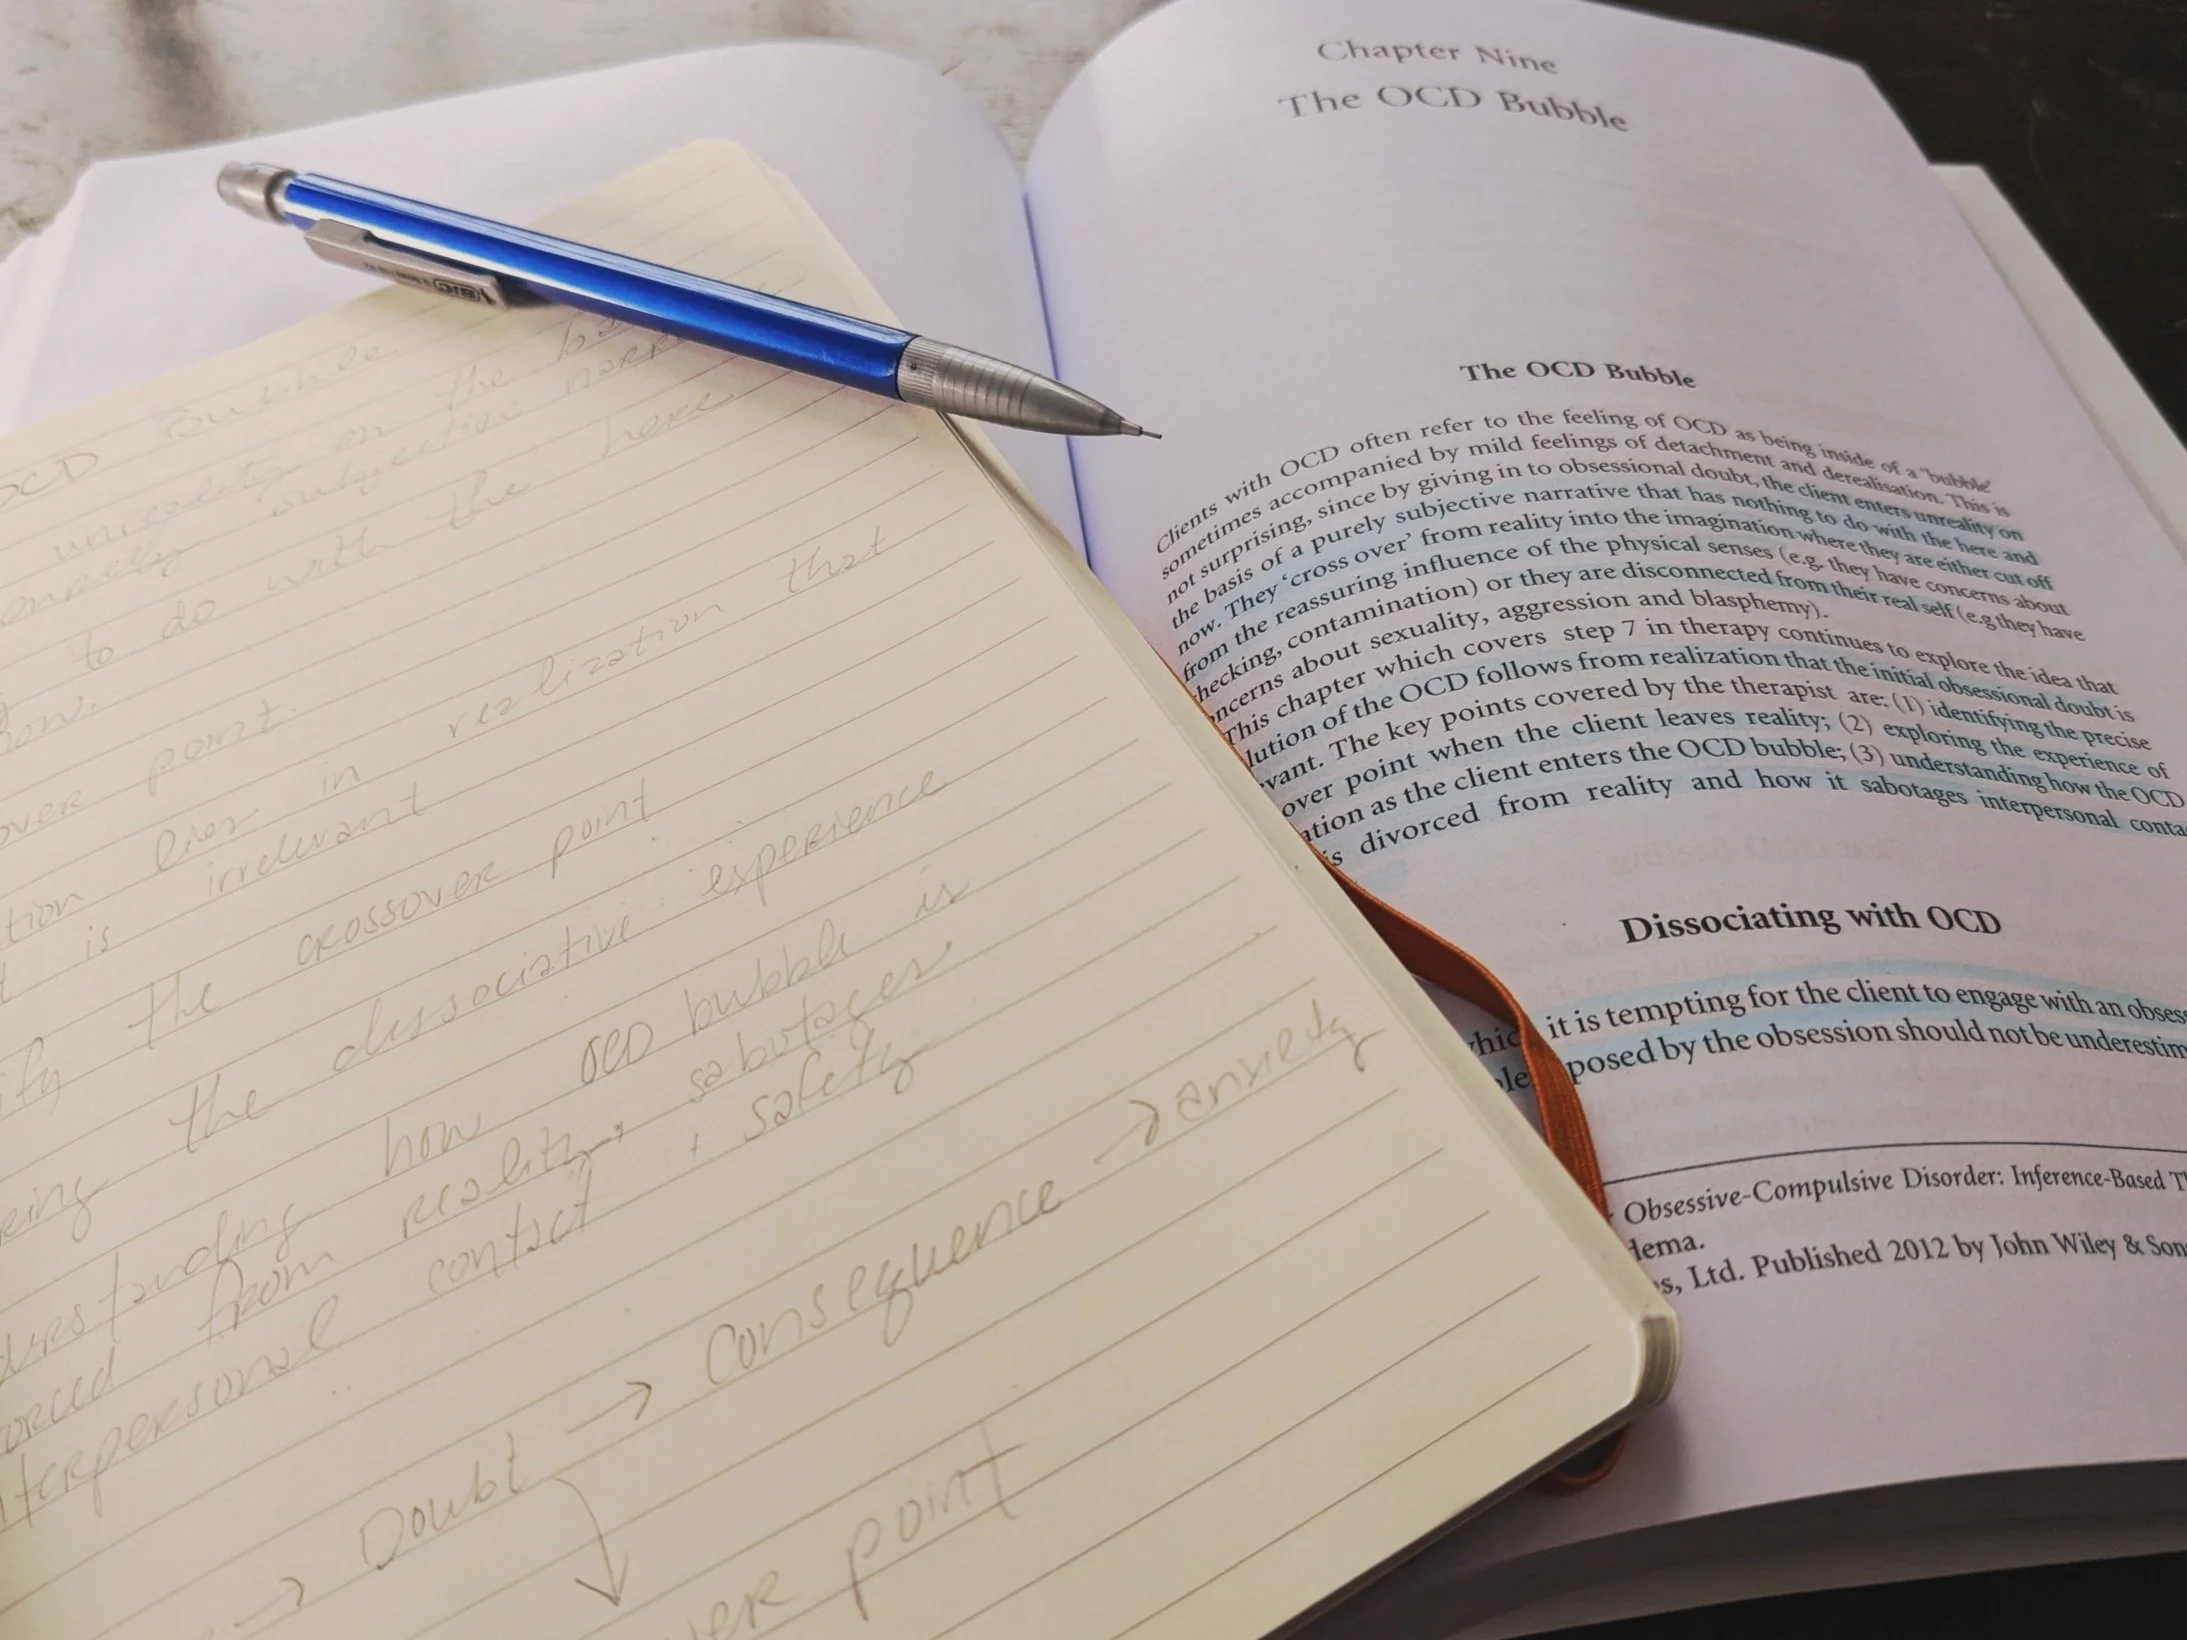 OCD Bubble
unreality on the
subjective
to do with the here
now.
point.
lies in realization that
is irrelevant
the crossover point
the dissociative experience
how OCD bubble is
from reality, sabotages
interpersonal contact, safety
→ Doubt → Consequence → anxiety
point
BIC
Chapter Nine
The OCD Bubble
The OCD Bubble
Clients with OCD often refer to the feeling of OCD as being inside of a "bubble'
sometimes accompanied by mild feelings of detachment and derealisation. This is
not surprising, since by giving in to obsessional doubt, the client enters unreality on
the basis of a purely subjective narrative that has nothing to do with the here and
now. They 'cross over' from reality into the imagination where they are either cut off
from the reassuring influence of the physical senses (e.g. they have concerns about
hecking, contamination) or they are disconnected from their real self (e.g they have
ncerns about sexuality, aggression and blasphemy).
This chapter which covers step 7 in therapy continues to explore the idea that
lution of the OCD follows from realization that the initial obsessional doubt is
vant. The key points covered by the therapist are: (1) identifying the precise
over point when the client leaves reality; (2) exploring the experience of
ation as the client enters the OCD bubble; (3) understanding how the OCD
is divorced from reality and how it sabotages interpersonal conta
Dissociating with OCD
it is tempting for the client to engage with an obses
posed by the obsession should not be underestim
Obsessive-Compulsive Disorder: Inference-Based T
dema.
s, Ltd. Published 2012 by John Wiley & Son